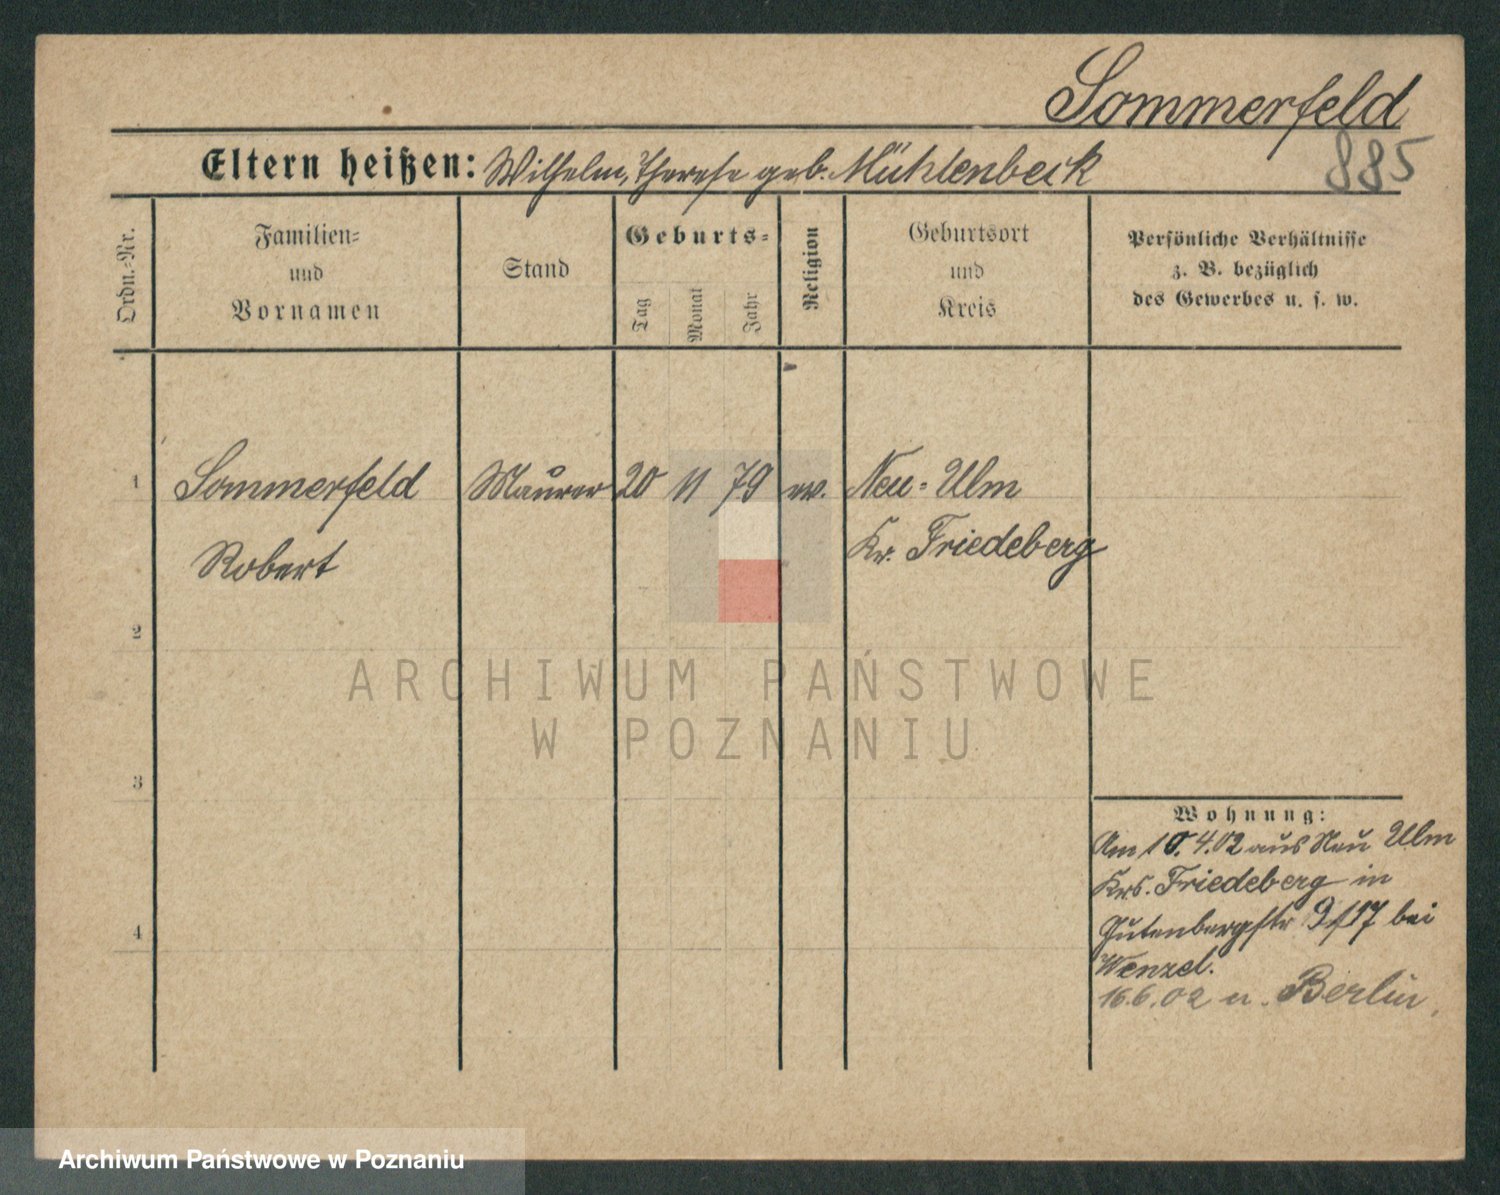 Sommerfeld
885
Eltern heißen: Wilhelm, Therese geb. Mühlenbeck
Ordn.-Nr.
Familien-
und
Vornamen
Stand
Geburts-
Tag
Monat
Jahr
Religion
Geburtsort
und
Kreis
Persönliche Verhältnisse
z. B. bezüglich
des Gewerbes u. s. w.
1 Sommerfeld Maurer 20 11 79 ev. Neu-Ulm
Robert Kr. Friedeberg
2
ARCHIWUM PAŃSTWOWE
W POZNANIU
3
Wohnung:
Am 10.4.02 aus Neu Ulm
Krs. Friedeberg in
Gutenbergstr 9/17 bei
4
Wenzel.
16.6.02 n. Berlin.
Archiwum Państwowe w Poznaniu